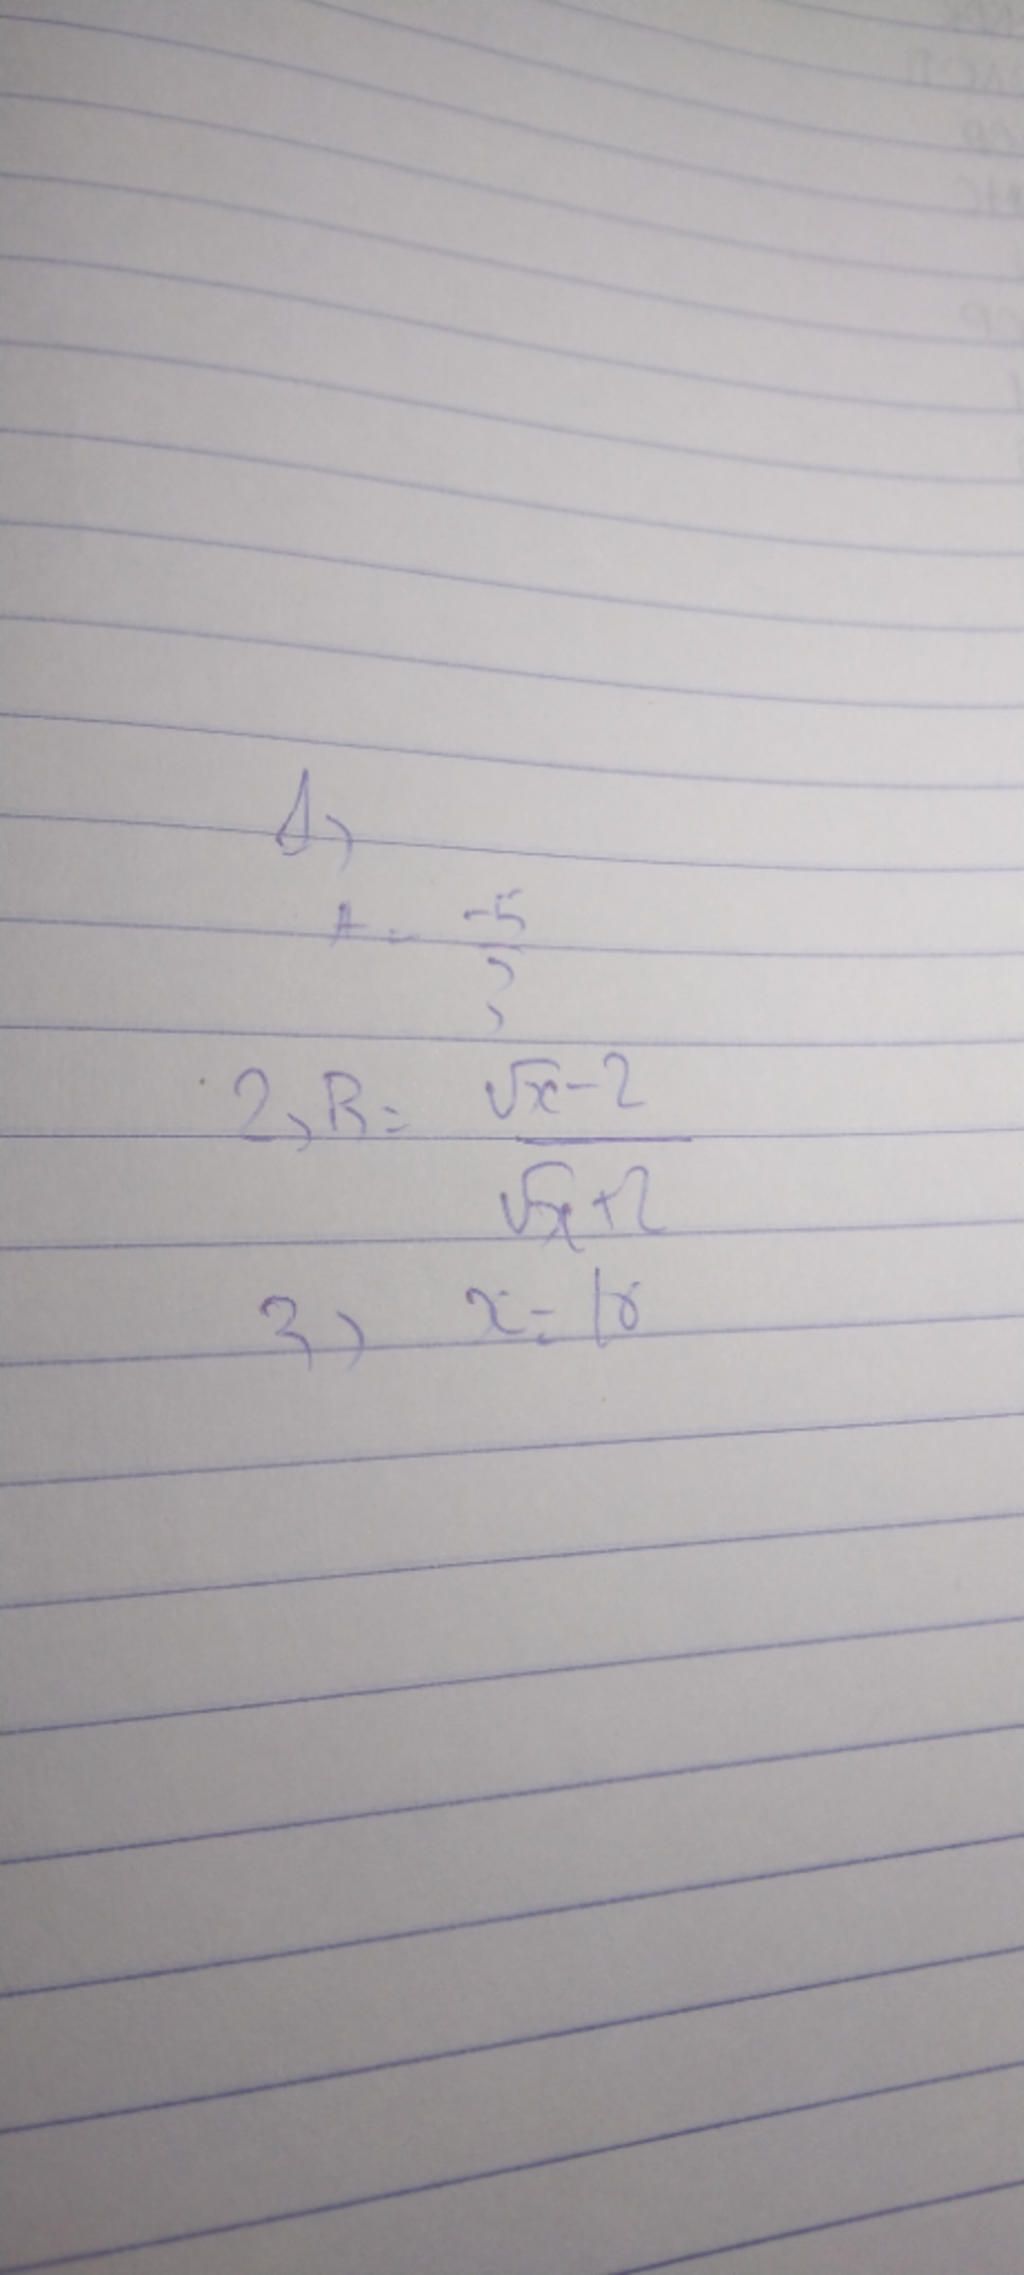 1)
A = -5/3
2, B = √x-2/√x+2
3) x = 16